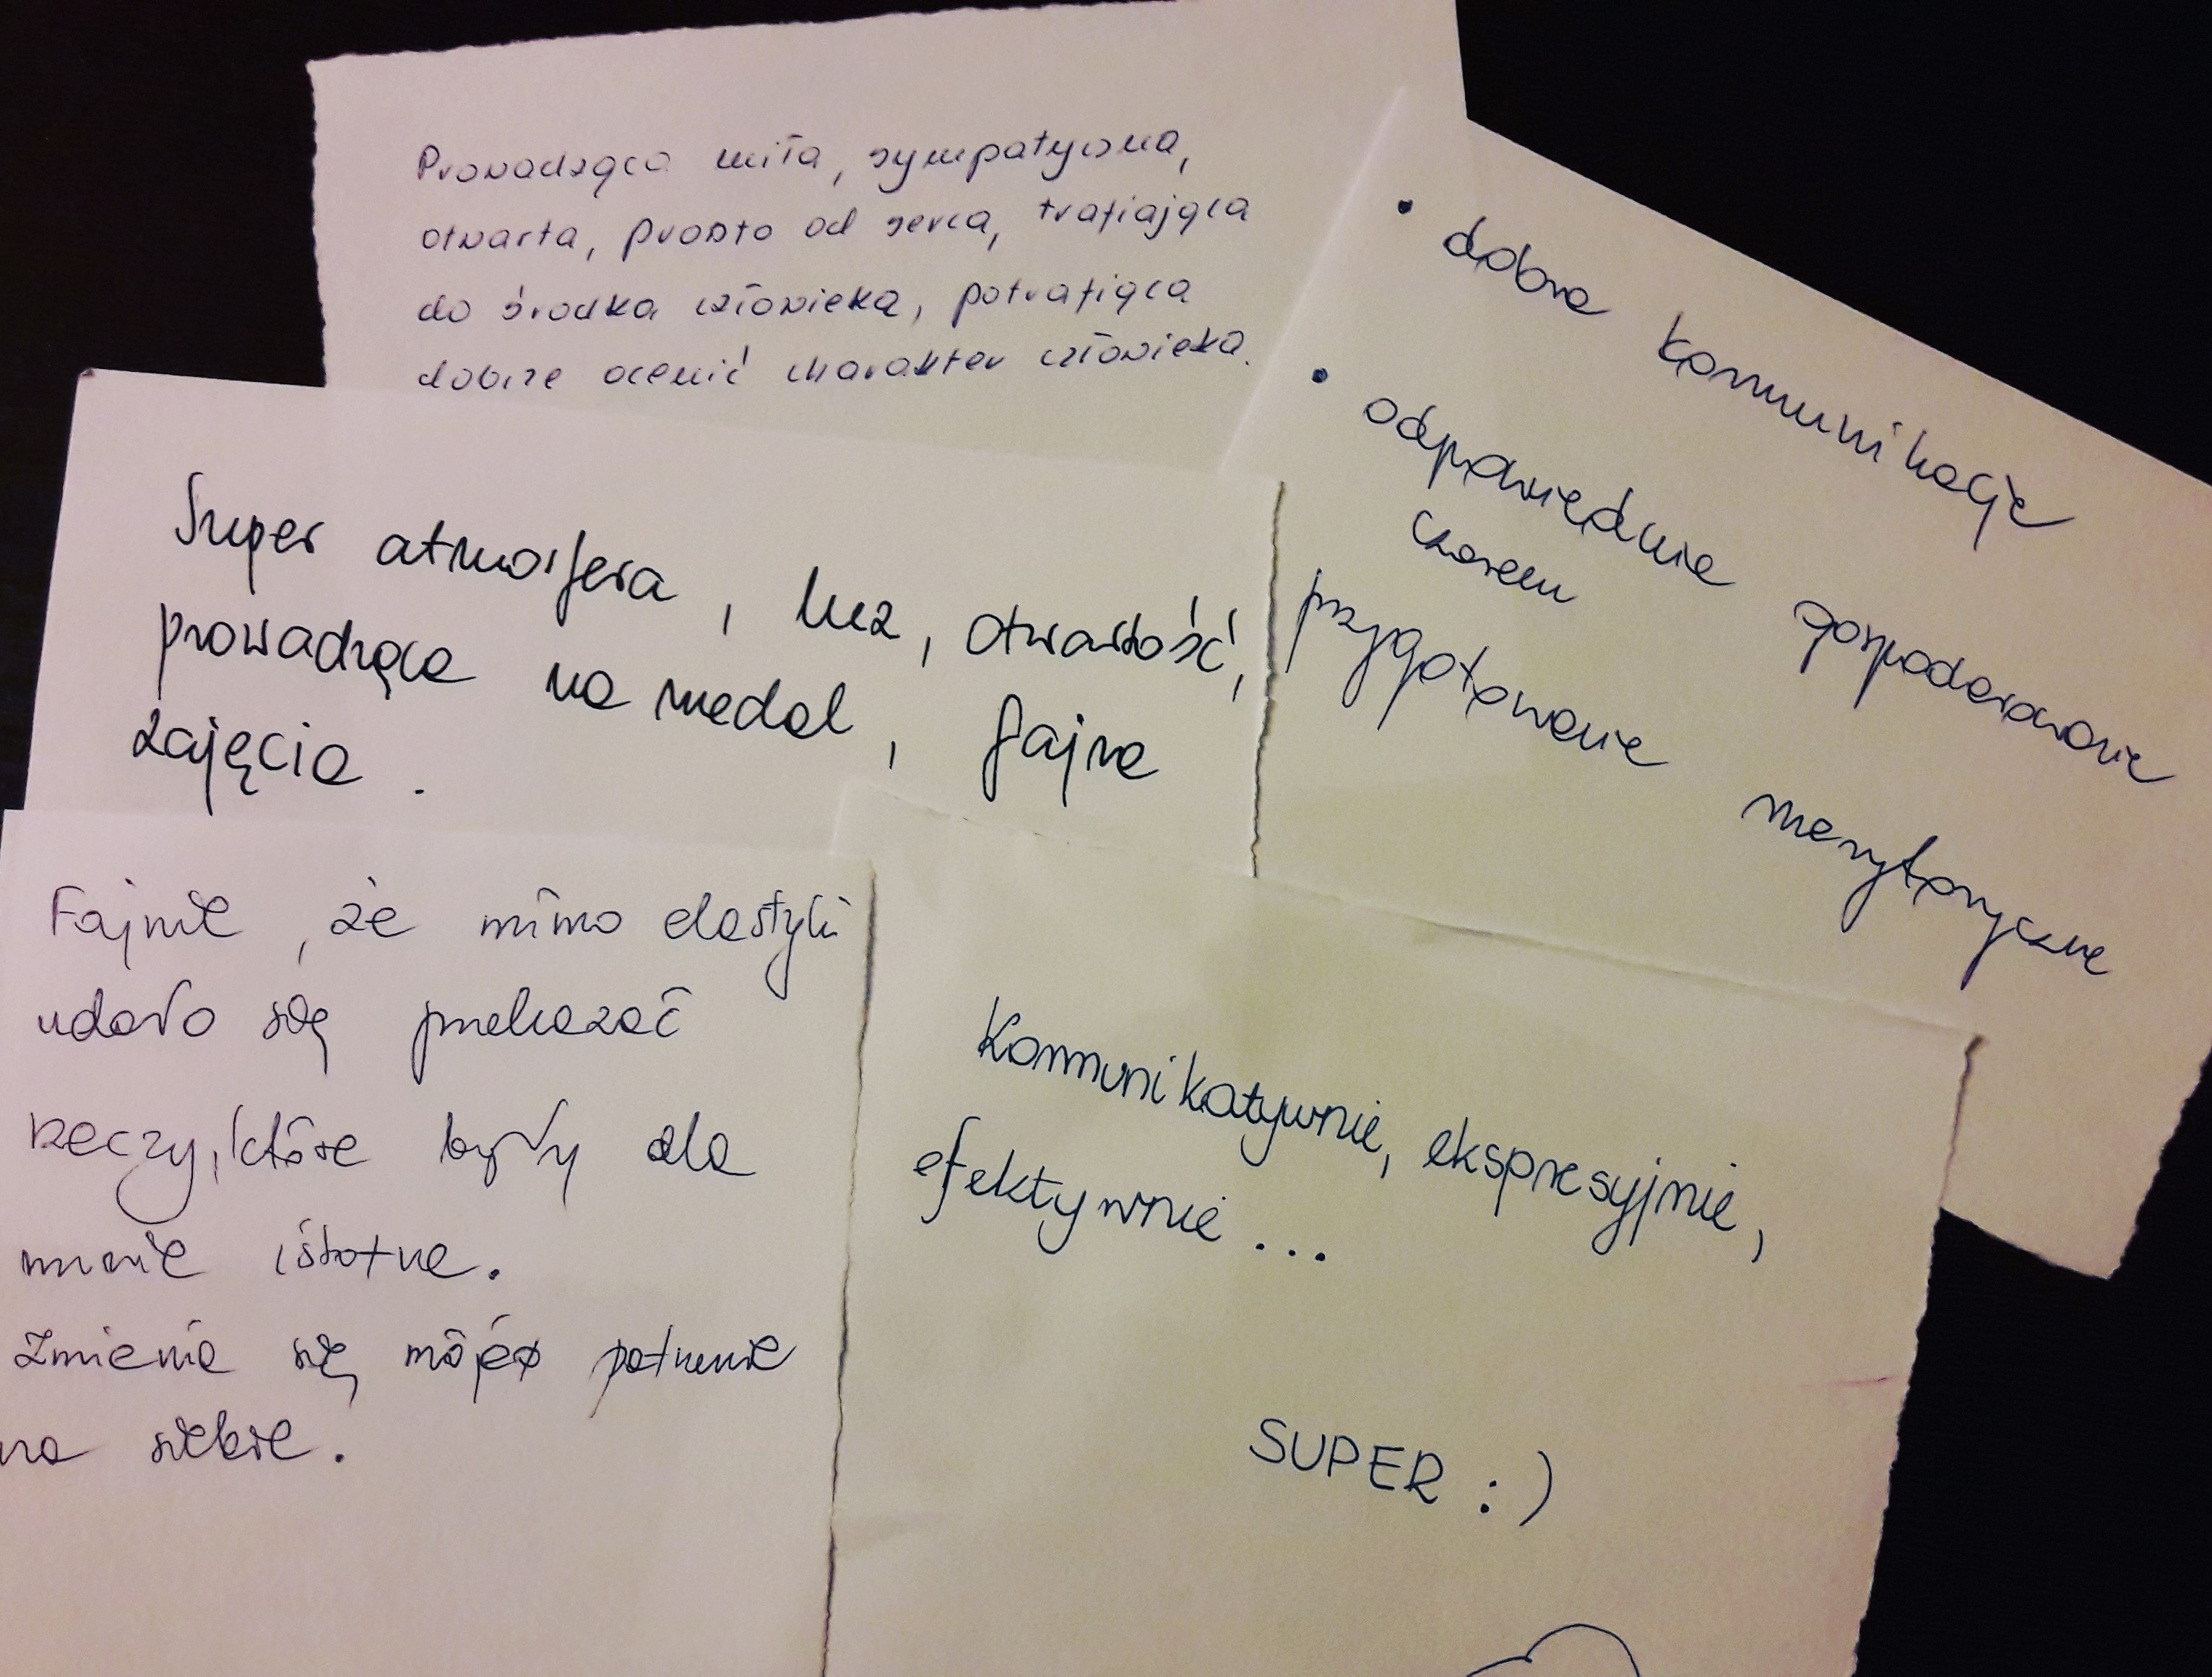 Prowadząca miła, sympatyczna,
otwarta, prosto od serca, trafiająca
do środka człowieka, potrafiąca
dobrze ocenić charakter człowieka.
• dobra komunikacja
• odpowiednie gospodarowanie
czasem
przygotowanie merytoryczne
Super atmosfera, luz, otwartość,
prowadząca na medal, fajne
zajęcia.
Fajnie, że mimo
udało się przekazać
rzeczy, które były dla
mnie istotne.
Zmienia się patrzenie
na siebie.
Komunikatywnie, ekspresyjnie,
efektywnie...
SUPER :)